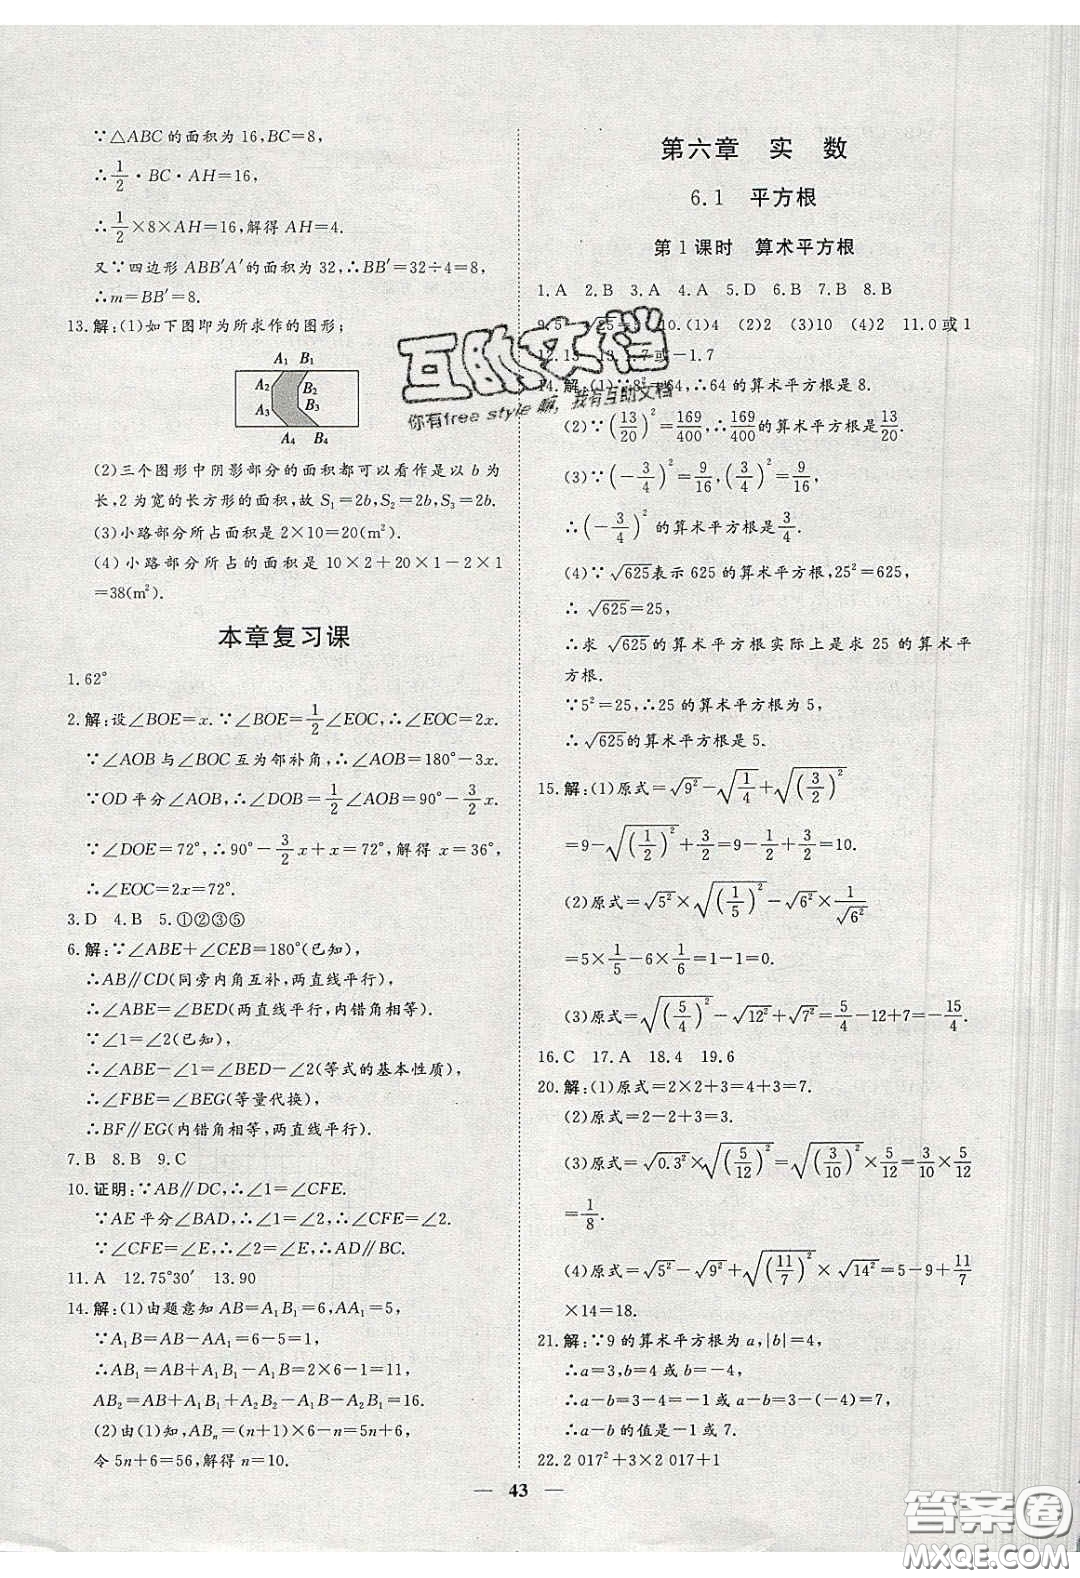 ∵△ABC的面积为16,BC=8,
∴1/2·BC·AH=16,
∴1/2×8×AH=16,解得AH=4.
又∵四边形ABB′A′的面积为32,∴BB′=32÷4=8,
∴m=BB′=8.
13.解:(1)如下图即为所求作的图形;
A₁ B₁
A₂ B₂
A₃ B₃
A₄ B₄
(2)三个图形中阴影部分的面积都可以看作是以b为
长,2为宽的长方形的面积,故S₁=2b,S₂=2b,S₃=2b.
(3)小路部分所占面积是2×10=20(m²).
(4)小路部分所占的面积是10×2+20×1-2×1
=38(m²).
本章复习课
1.62°
2.解:设∠BOE=x.∵∠BOE=1/2∠EOC,∴∠EOC=2x.
∵∠AOB与∠BOC互为邻补角,∴∠AOB=180°-3x.
∵OD平分∠AOB,∴∠DOB=1/2∠AOB=90°-3/2x.
∵∠DOE=72°,∴90°-3/2x+x=72°,解得x=36°,
∴∠EOC=2x=72°.
3.D 4.B 5.①②③⑤
6.解:∵∠ABE+∠CEB=180°(已知),
∴AB∥CD(同旁内角互补,两直线平行),
∴∠ABE=∠BED(两直线平行,内错角相等).
∵∠1=∠2(已知),
∴∠ABE-∠1=∠BED-∠2(等式的基本性质),
∴∠FBE=∠BEG(等量代换),
∴BF∥EG(内错角相等,两直线平行).
7.B 8.B 9.C
10.证明:∵AB∥DC,∴∠1=∠CFE.
∵AE平分∠BAD,∴∠1=∠2,∴∠CFE=∠2.
∵∠CFE=∠E,∴∠2=∠E,∴AD∥BC.
11.A 12.75°30′ 13.90
14.解:(1)由题意知AB=A₁B₁=6,AA₁=5,
∵A₁B=AB-AA₁=6-5=1,
∴AB₁=AB+A₁B₁-A₁B=2×6-1=11,
AB₂=AB+A₁B₁+A₂B₂-A₁B-A₂B₁=16.
(2)由(1)知,ABₙ=(n+1)×6-n=5n+6,
令5n+6=56,解得n=10.
第六章 实 数
6.1 平方根
第1课时 算术平方根
1.A 2.B 3.A 4.A 5.D 6.B 7.B 8.B
9.5 √25=5 10.(1)4 (2)2 (3)10 (4)2 11.0或1
12.13 13.1.7或-1.7
14.解:(1)∵8²=64,∴64的算术平方根是8.
(2)∵(13/20)²=169/400,∴169/400的算术平方根是13/20.
(3)∵(-3/4)²=9/16,(3/4)²=9/16,
∴(-3/4)²的算术平方根是3/4.
(4)∵√625表示625的算术平方根,25²=625,
∴√625=25,
∴求√625的算术平方根实际上是求25的算术平
方根.
∵5²=25,∴25的算术平方根为5,
∴√625的算术平方根是5.
15.解:(1)原式=√9²-√(1/4)+√((3/2)²)
=9-√((1/2)²)+3/2=9-1/2+3/2=10.
(2)原式=√5²×√((1/5)²)-√6²×1/√6²
=5×1/5-6×1/6=1-1=0.
(3)原式=√((5/4)²)-√12²+√7²=5/4-12+7=-15/4.
16.C 17.A 18.4 19.6
20.解:(1)原式=2×2+3=4+3=7.
(2)原式=2-2+3=3.
(3)原式=√0.3²×√((5/12)²)=√((3/10)²)×5/12=3/10×5/12
=1/8.
(4)原式=√5²-√9²+√((11/7)²)×√14²=5-9+11/7
×14=18.
21.解:∵9的算术平方根为a,|b|=4,
∴a=3,b=4或b=-4,
∴a-b=3-4=-1或a-b=3-(-4)=7,
∴a-b的值是-1或7.
22.2 017²+3×2 017+1
43
互助文档
你有free style嘛,我有互助文档
答案卷
MXQE.COM